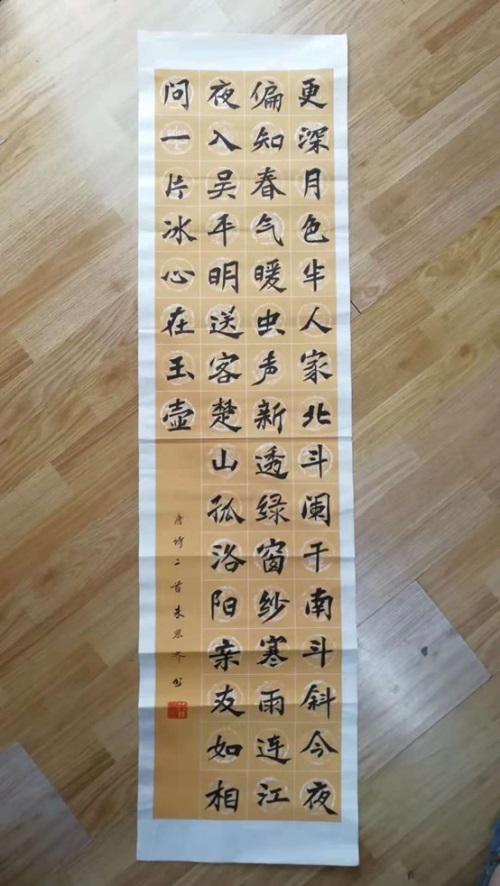 更深月色半人家北斗阑干南斗斜今夜
偏知春气暖虫声新透绿窗纱寒雨连江
夜入吴平明送客楚山孤洛阳亲友如相
问一片冰心在玉壶
唐诗二首朱思齐书